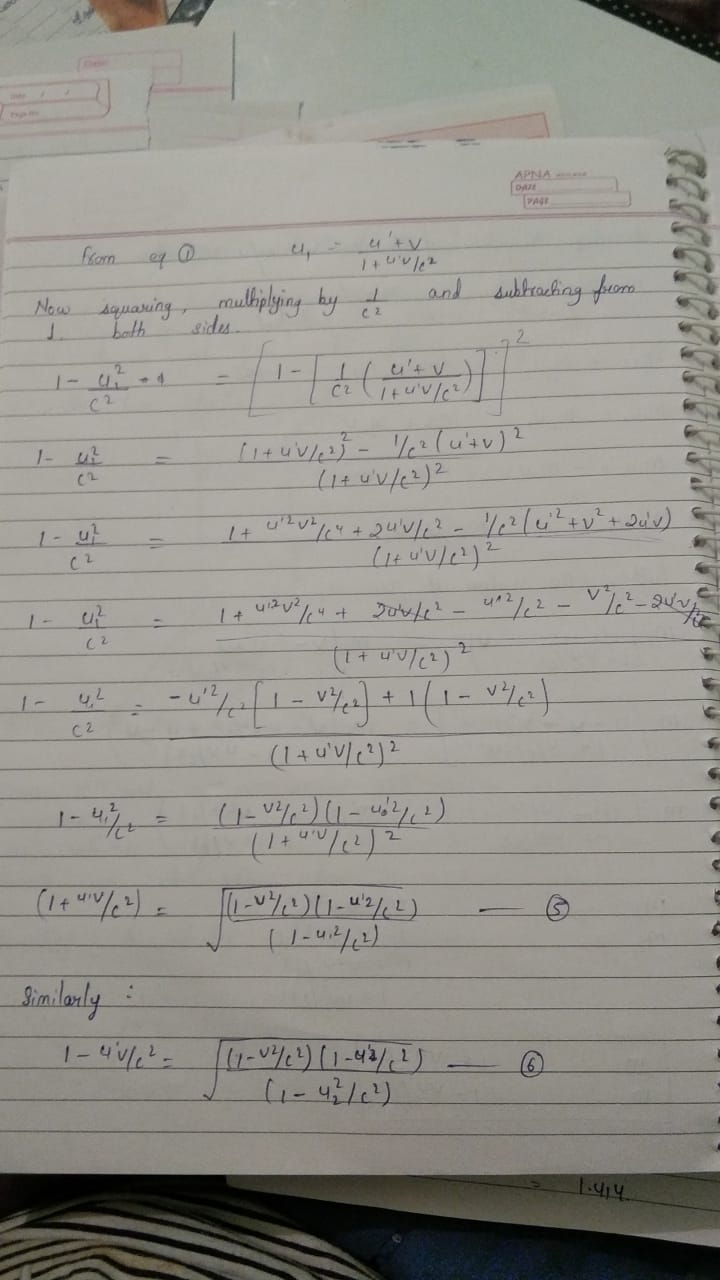 APNA
DATE
PAGE
from eq ① u₁ = u'+v / 1+u'v/c²
Now squaring, multiplying by 1/c² and subtracting from
1. both sides.
1 - u₁²/c² = [1 - [1/c² (u'+v / 1+u'v/c²)]]²
1 - u₁²/c² = (1+u'v/c²)² - 1/c²(u'+v)² / (1+u'v/c²)²
1 - u₁²/c² = 1 + u'²v²/c⁴ + 2u'v/c² - 1/c²(u'²+v²+2u'v) / (1+u'v/c²)²
1 - u₁²/c² = 1 + u'²v²/c⁴ + 2u'v/c² - u'²/c² - v²/c² - 2u'v/c² / (1+u'v/c²)²
1 - u₁²/c² = -u'²/c² [1 - v²/c²] + 1(1 - v²/c²) / (1+u'v/c²)²
1 - u₁²/c² = (1-v²/c²)(1-u'²/c²) / (1+u'v/c²)²
(1+u'v/c²) = √(1-v²/c²)(1-u'²/c²) / (1-u₁²/c²) — ⑤
Similarly :
1 - u'v/c² = √(1-v²/c²)(1-u'²/c²) / (1-u₂²/c²) — ⑥
= 1.414